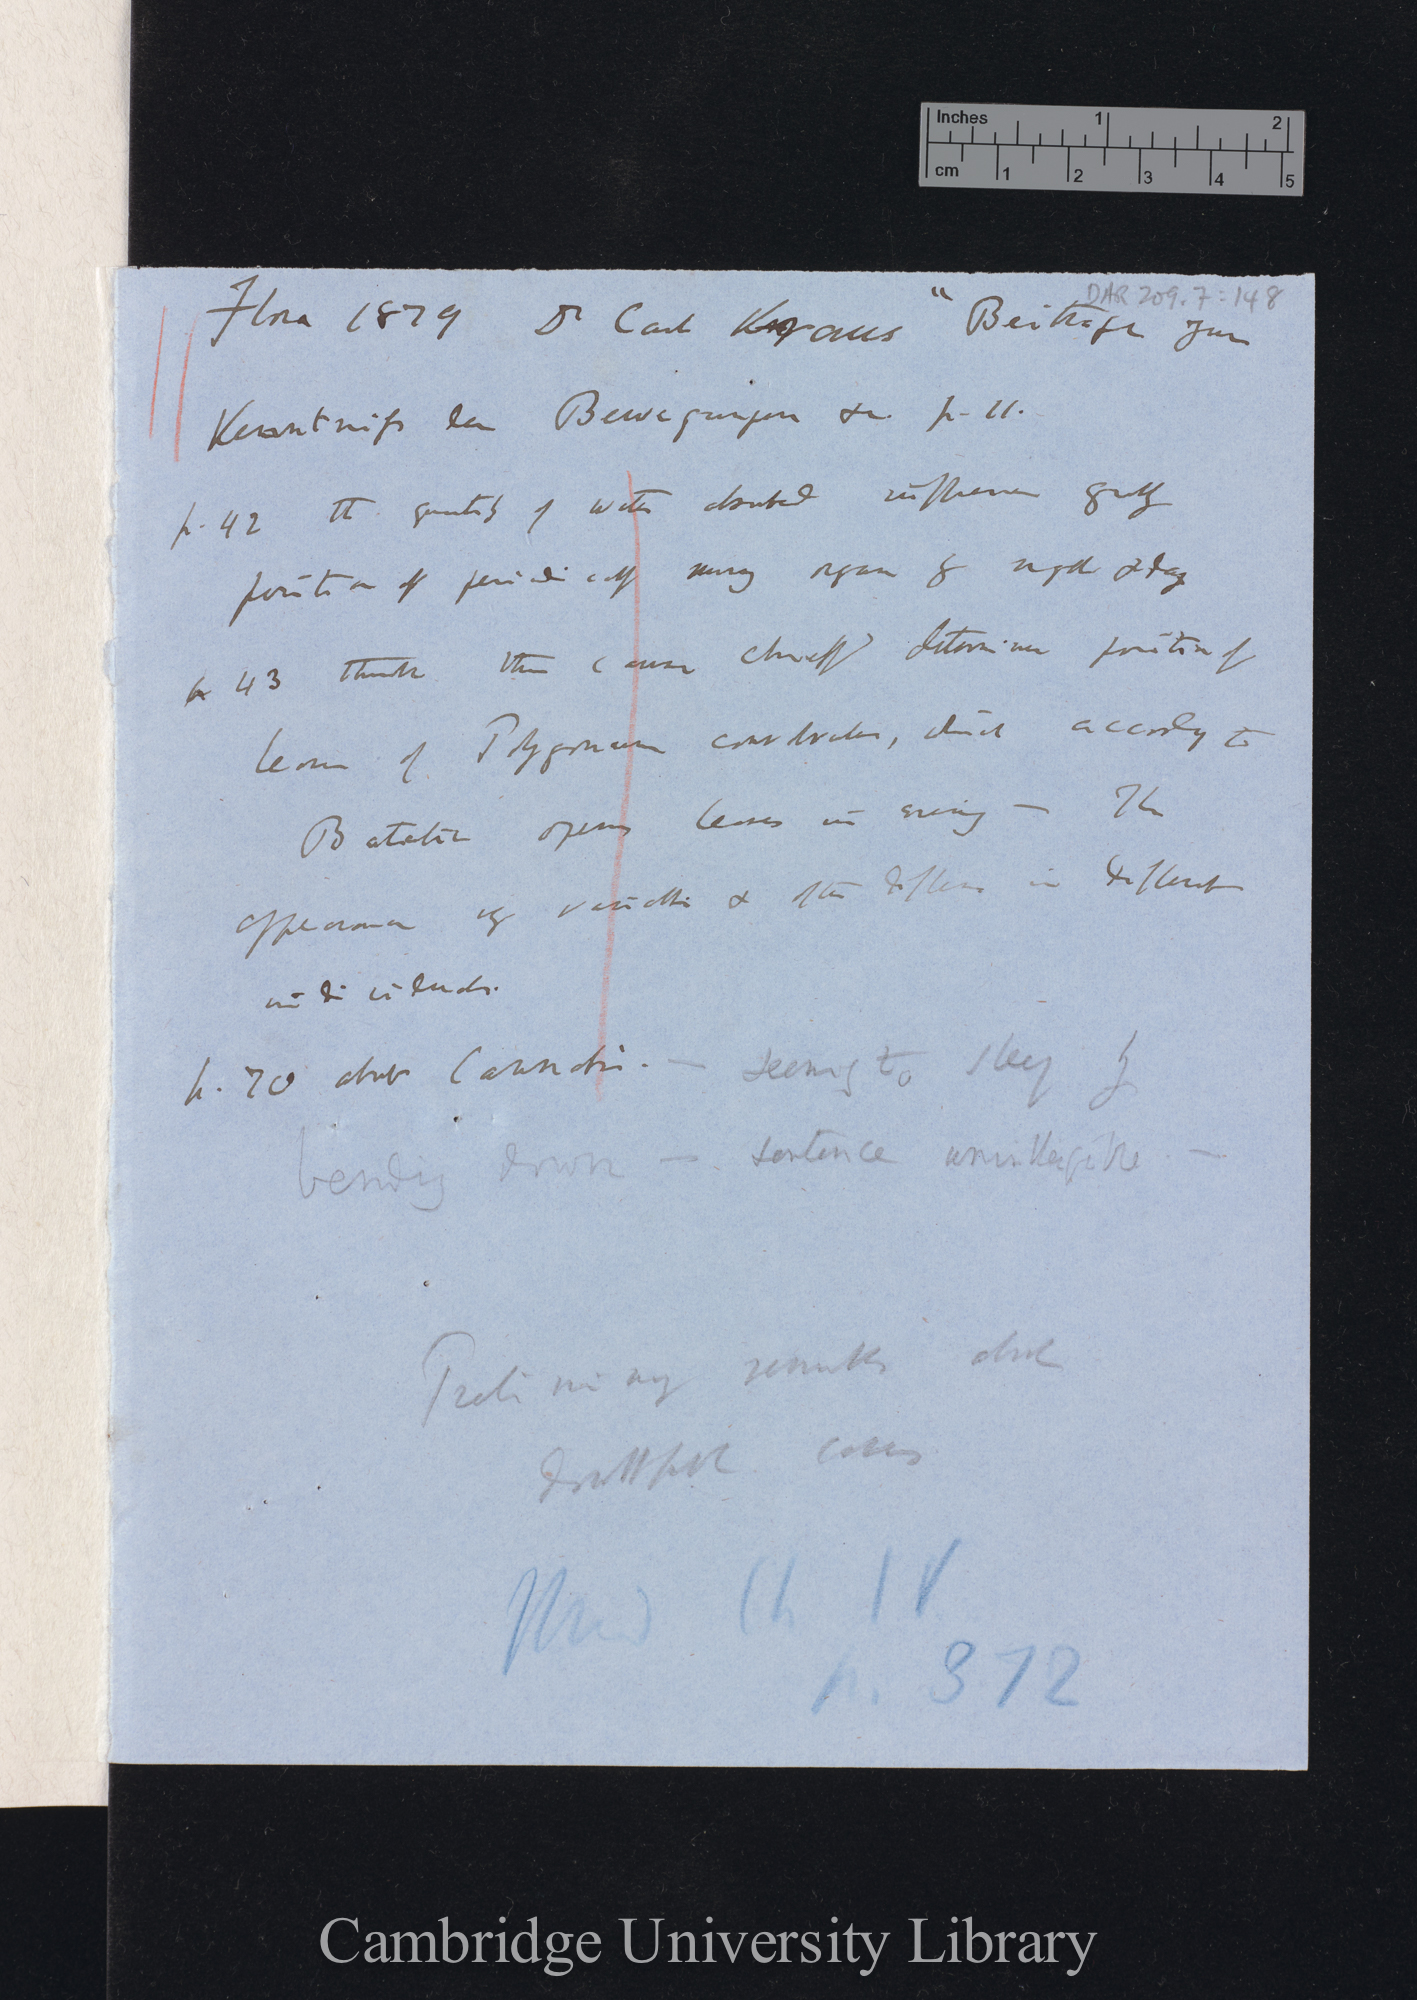 Inches 1 2
cm 1 2 3 4 5
DAR 209.7:148
Flora 1879 Dr Carl Kraus "Beiträge zur
Kenntniss der Bewegungen &c. p. 11.
p. 42 the quantity of water absorbed influences greatly
position of periodically moving organs by night & day
p 43 thinks this cause chiefly determines position of
leaves of Polygonum convolvulus, which according to
Batalin opens leaves in evening — The
appearance is variable & often different in different
individuals.
p. 70 about — seems to sleep by
bending down — sentence unintelligible —
Preliminary remarks about
doubtful cases
Used Ch IV
p. 372
Cambridge University Library